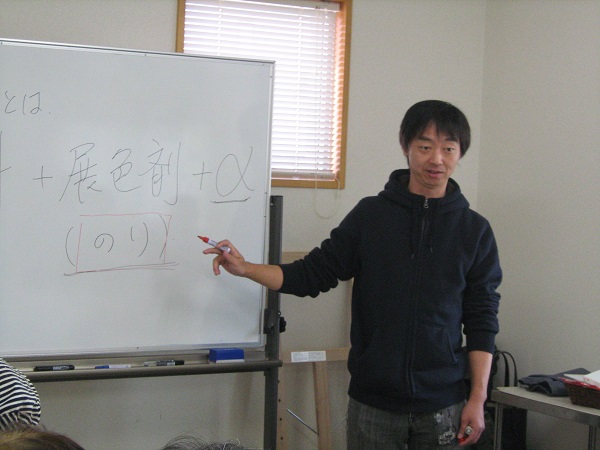 とは.
+展色剤+α
(のり)